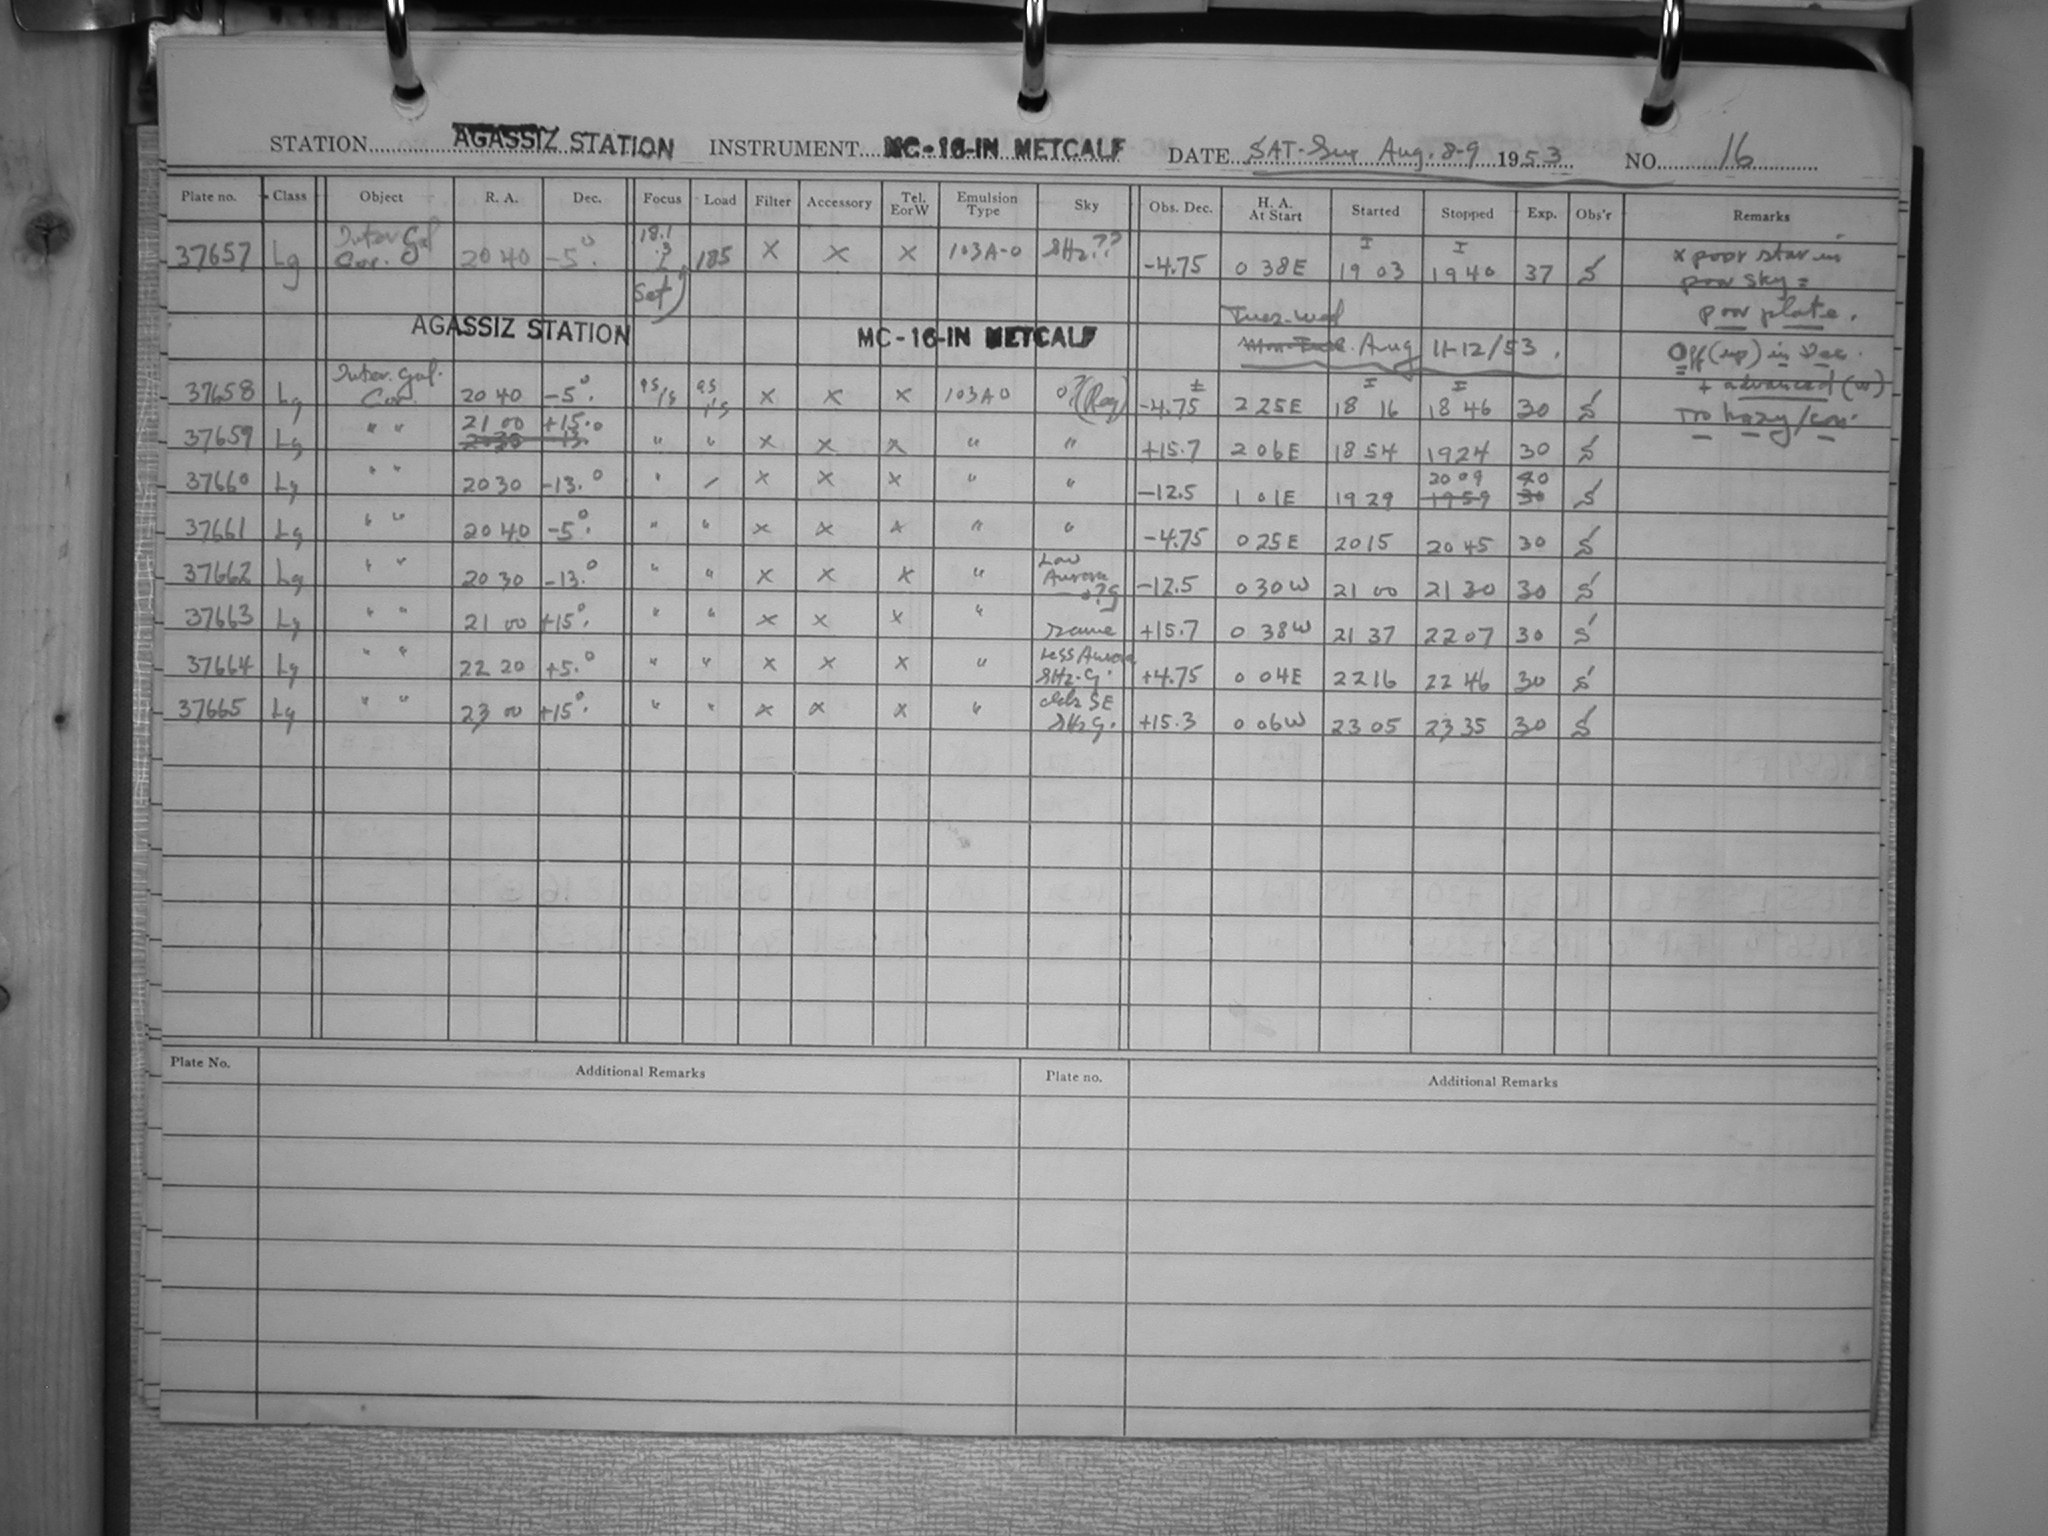 STATION AGASSIZ STATION INSTRUMENT MC-16-IN METCALF DATE SAT-Sun Aug. 8-9 1953 NO. 16
Plate no. Class Object R. A. Dec. Focus Load Filter Accessory Tel. E or W Emulsion Type Sky Obs. Dec. H. A. At Start Started Stopped Exp. Obs'r Remarks
37657 Lg Inter Gal Cor. 20 40 -5°. 18.1 .3 185 x x x 103A-0 SHz?? -4.75 0 38E I 19 03 I 19 40 37 S x poor star in
Set poor sky =
poor plate.
AGASSIZ STATION MC-16-IN METCALF Tues-Wed Aug 11-12/53. Off (up) in Dec.
37658 Lg Inter. Gal. Cor. 20 40 -5°. x x x 103A0 -4.75 ± 2 25E I 18 16 I 18 46 30 S + advanced (w)
Too hazy/
37659 Lg " " 21 00 +15.0 20 30 -13. " " x x x " " +15.7 2 06E 18 54 19 24 30 S
37660 Lg " " 20 30 -13.° " x x x " " -12.5 1 01E 19 29 20 09 19 59 40 30 S
37661 Lg " " 20 40 -5°. " " x x x " " -4.75 0 25E 20 15 20 45 30 S
37662 Lg " " 20 30 -13.° " " x x x " Low Aurora -12.5 0 30W 21 00 21 30 30 S
37663 Lg " " 21 00 +15°. " " x x x " Same +15.7 0 38W 21 37 22 07 30 S
37664 Lg " " 22 20 +5.° " " x x x " Less Aurora SHz.G. +4.75 0 04E 22 16 22 46 30 S
37665 Lg " " 23 00 +15°. " " x x x " SE SHzG. +15.3 0 06W 23 05 23 35 30 S
Plate No. Additional Remarks Plate no. Additional Remarks